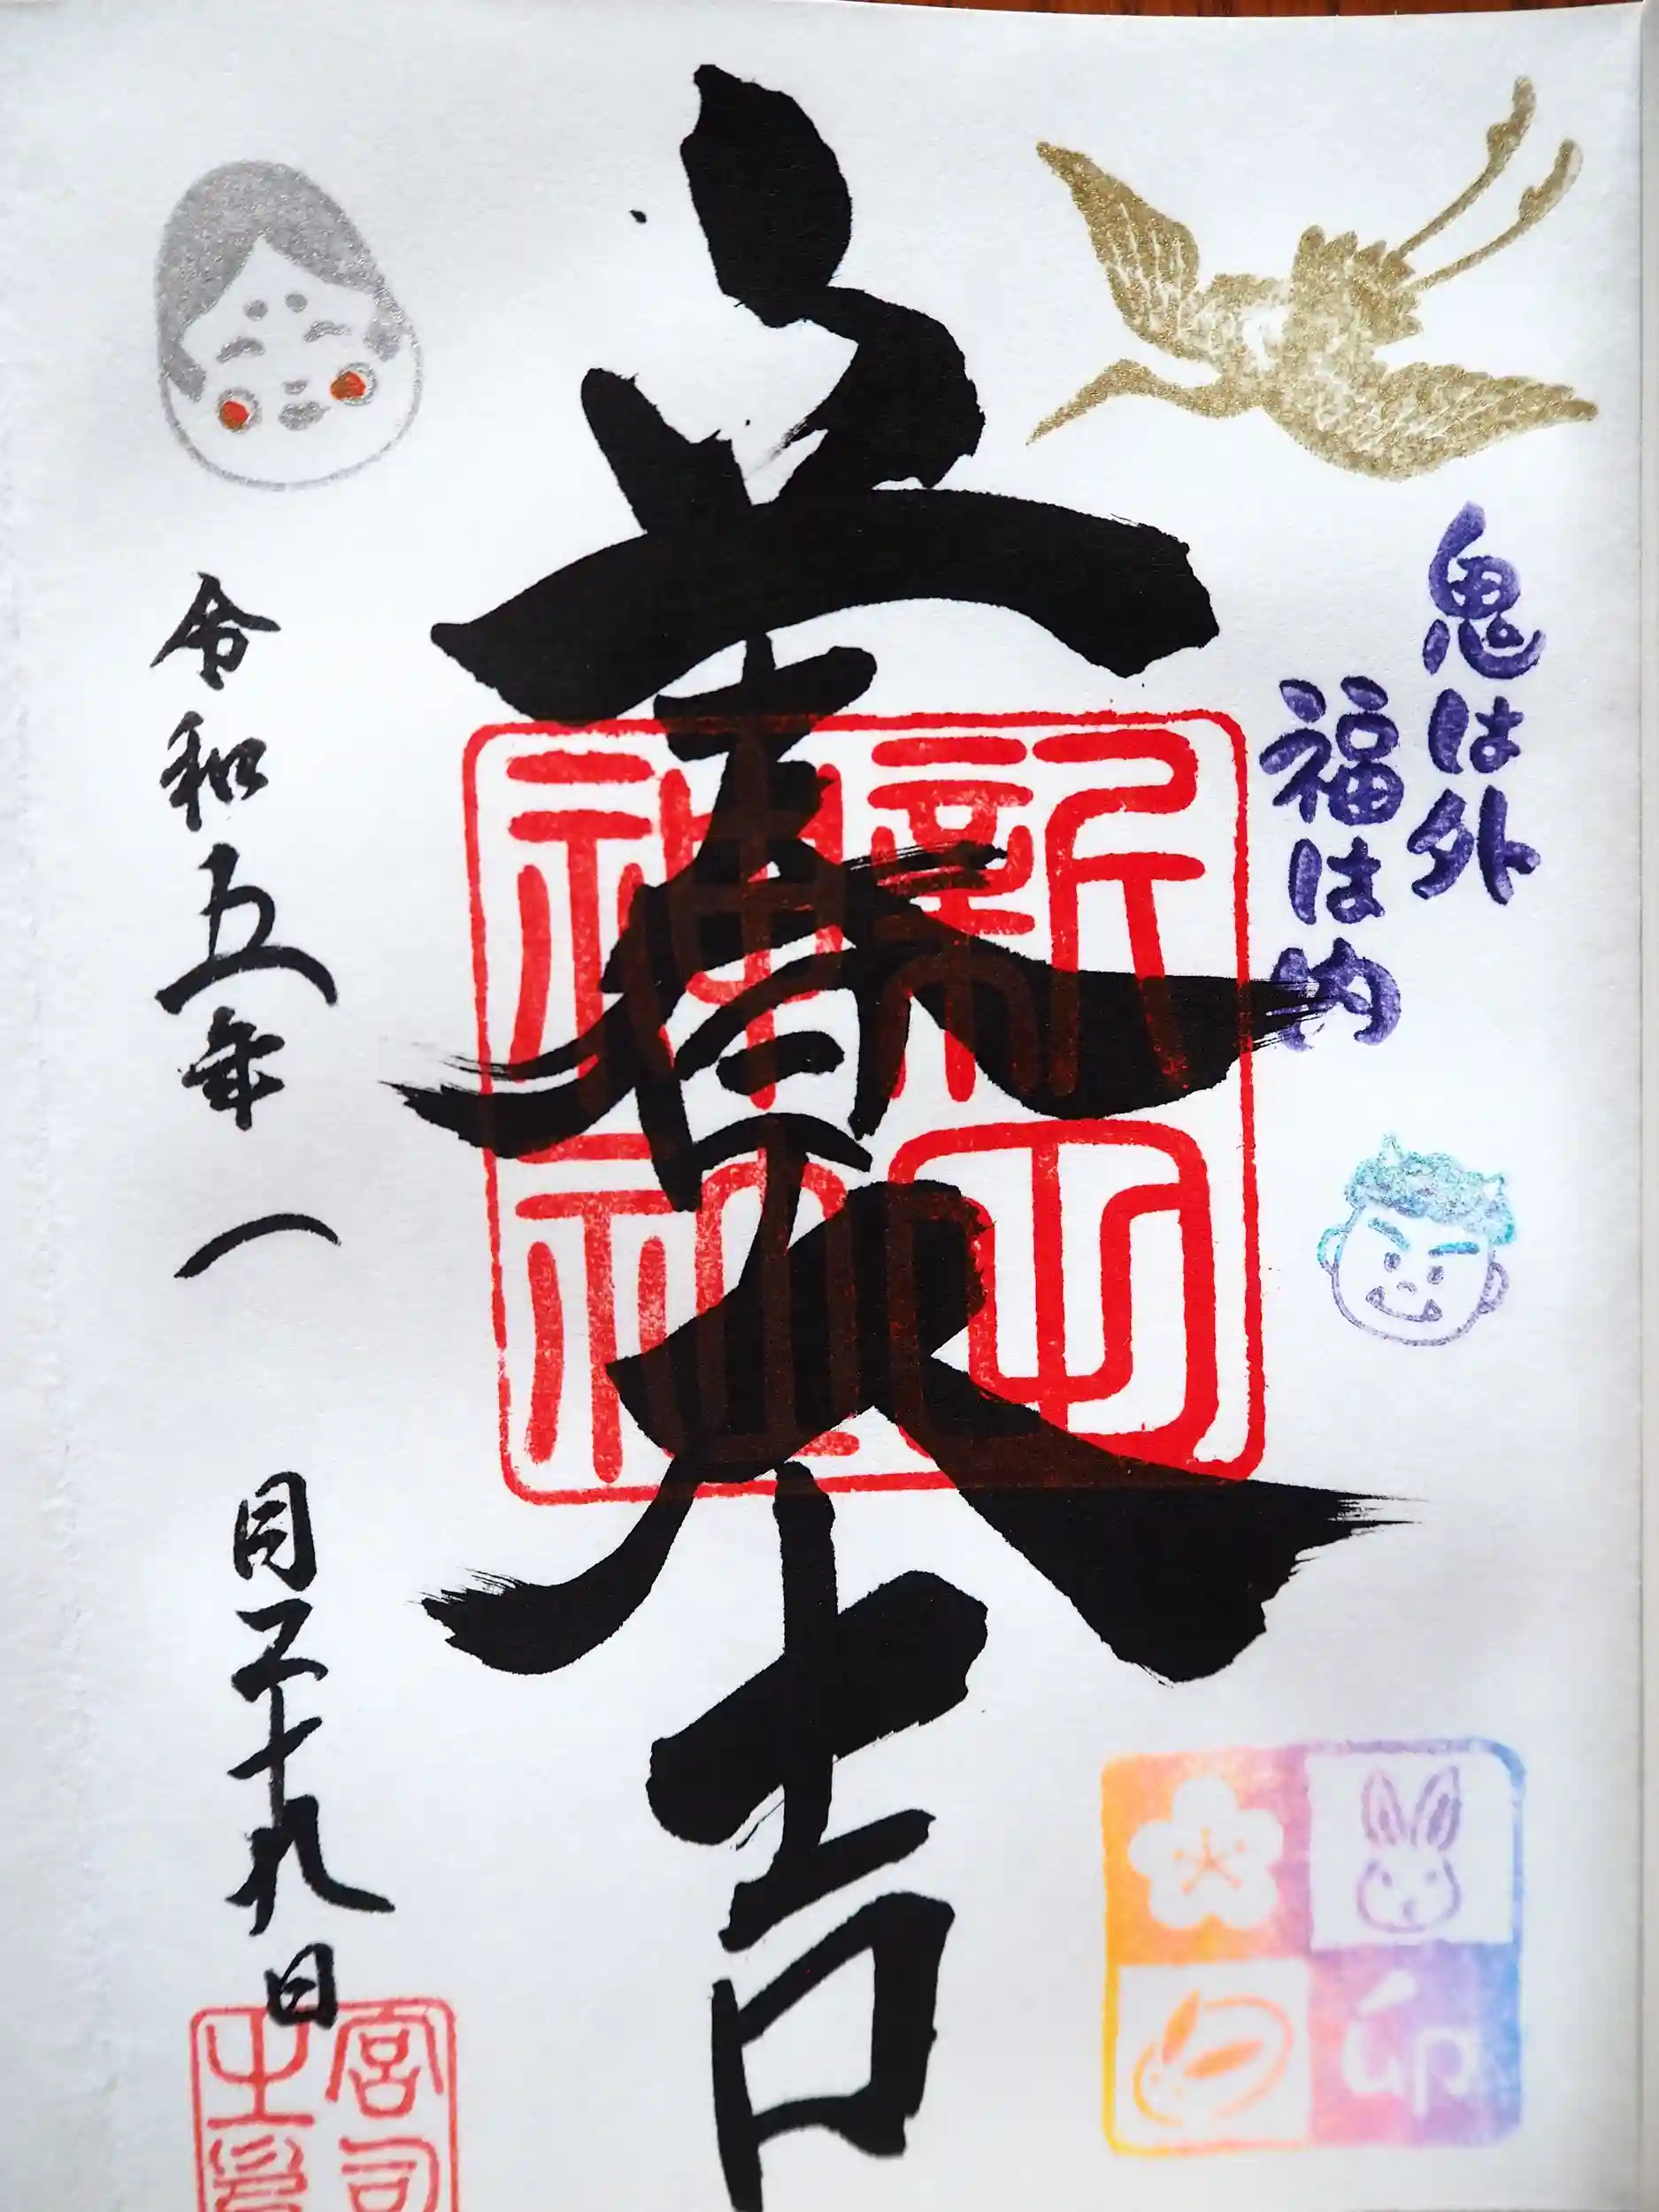 鬼は外
福は内
立春大吉
新町神社
令和五年一月二十九日
卯
宮司之印